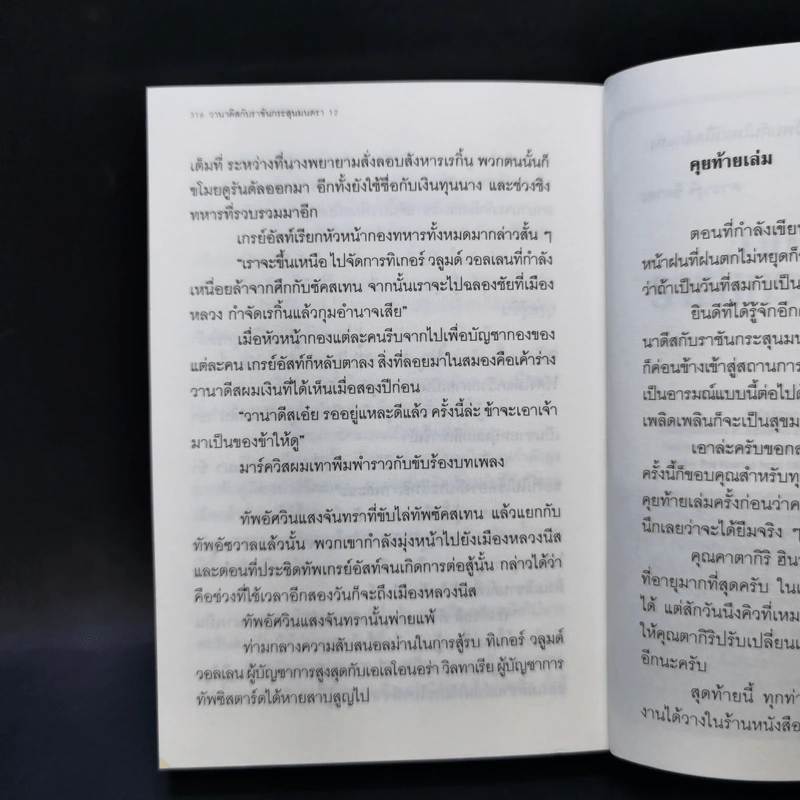 316 วานาดีสกับราชันกระสุนมนตรา 12
เต็มที่ ระหว่างที่นางพยายามสั่งลอบสังหารเรกิ้น พวกตนนั้นก็
ขโมยดูรันดัลออกมา อีกทั้งยังใช้ชื่อกับเงินทุนนาง และช่วงชิง
ทหารที่รวบรวมมาอีก
เกรย์อัสท์เรียกหัวหน้ากองทหารทั้งหมดมากล่าวสั้น ๆ
“เราจะขึ้นเหนือ ไปจัดการทิเกอร์ วลูมด์ วอลเลนที่กำลัง
เหนื่อยล้าจากศึกกับซัคสเทน จากนั้นเราจะไปฉลองชัยที่เมือง
หลวง กำจัดเรกิ้นแล้วกุมอำนาจเสีย”
เมื่อหัวหน้ากองแต่ละคนรีบจากไปเพื่อบัญชากองของ
แต่ละคน เกรย์อัสท์ก็หลับตาลง สิ่งที่ลอยมาในสมองคือเค้าร่าง
วานาดีสผมเงินที่ได้เห็นเมื่อสองปีก่อน
“วานาดีสเอ๋ย รออยู่แหละดีแล้ว ครั้งนี้ล่ะ ข้าจะเอาเจ้า
มาเป็นของข้าให้ดู”
มาร์ควิสผมเทาพึมพำราวกับขับร้องบทเพลง
ทัพอัศวินแสงจันทราที่ขับไล่ทัพซัคสเทน แล้วแยกกับ
ทัพอัซวาลแล้วนั้น พวกเขากำลังมุ่งหน้าไปยังเมืองหลวงนีส
และตอนที่ประชิดทัพเกรย์อัสท์จนเกิดการต่อสู้นั้น กล่าวได้ว่า
คือช่วงที่ใช้เวลาอีกสองวันก็จะถึงเมืองหลวงนีส
ทัพอัศวินแสงจันทรานั้นพ่ายแพ้
ท่ามกลางความสับสนอลม่านในการสู้รบ ทิเกอร์ วลูมด์
วอลเลน ผู้บัญชาการสูงสุดกับเอเลโอนอร่า วิลทาเรีย ผู้บัญชาการ
ทัพซิสตาร์ดได้หายสาบสูญไป
คุยท้ายเล่ม
ตอนที่กำลังเขียน
หน้าฝนที่ฝนตกไม่หยุดก็
ว่าถ้าเป็นวันที่สมกับเป็น
ยินดีที่ได้รู้จักอีก
นาดีสกับราชันกระสุนมน
ก็ค่อนข้างเข้าสู่สถานการ
เป็นอารมณ์แบบนี้ต่อไป
เพลิดเพลินก็จะเป็นสุขม
เอาล่ะครับขอกล
ครั้งนี้ก็ขอบคุณสำหรับทุ
คุยท้ายเล่มครั้งก่อนว่าค
นึกเลยว่าจะได้ยืมจริง ๆ
คุณคาตากิริ ฮินา
ที่อายุมากที่สุดครับ ใน
ได้ แต่สักวันนึงคิวที่เหม
ให้คุณตากิริปรับเปลี่ยน
อีกนะครับ
สุดท้ายนี้ ทุกท่า
งานได้วางในร้านหนังสือ